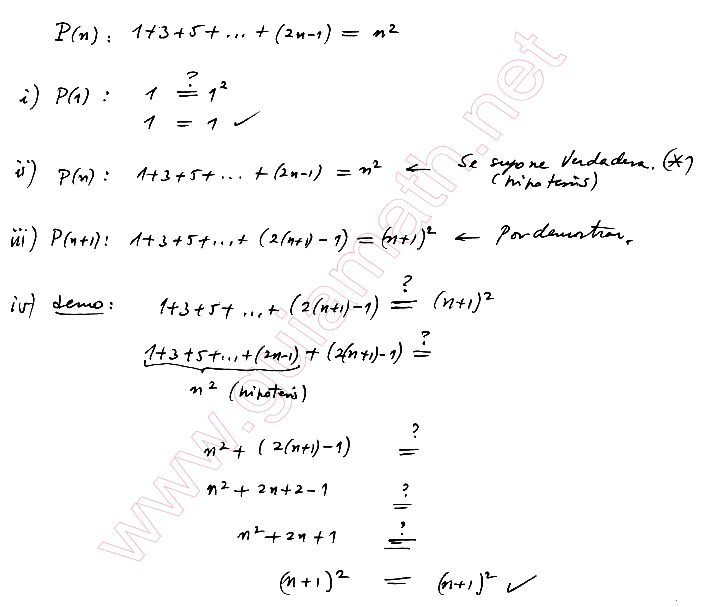 P(n): 1+3+5+...+(2n-1) = n²
i) P(1): 1 ≟ 1²
1 = 1 ✓
ii) P(n): 1+3+5+...+(2n-1) = n² ← Se supone Verdadera. (*)
(hipotesis)
iii) P(n+1): 1+3+5+...+(2(n+1)-1) = (n+1)² ← Por demostrar.
iv) demo: 1+3+5+...+(2(n+1)-1) ≟ (n+1)²
1+3+5+...+(2n-1)+(2(n+1)-1) ≟
n² (hipotesis)
n²+(2(n+1)-1) ≟
n²+2n+2-1 ≟
n²+2n+1 ≟
(n+1)² = (n+1)² ✓
www.guiamath.net